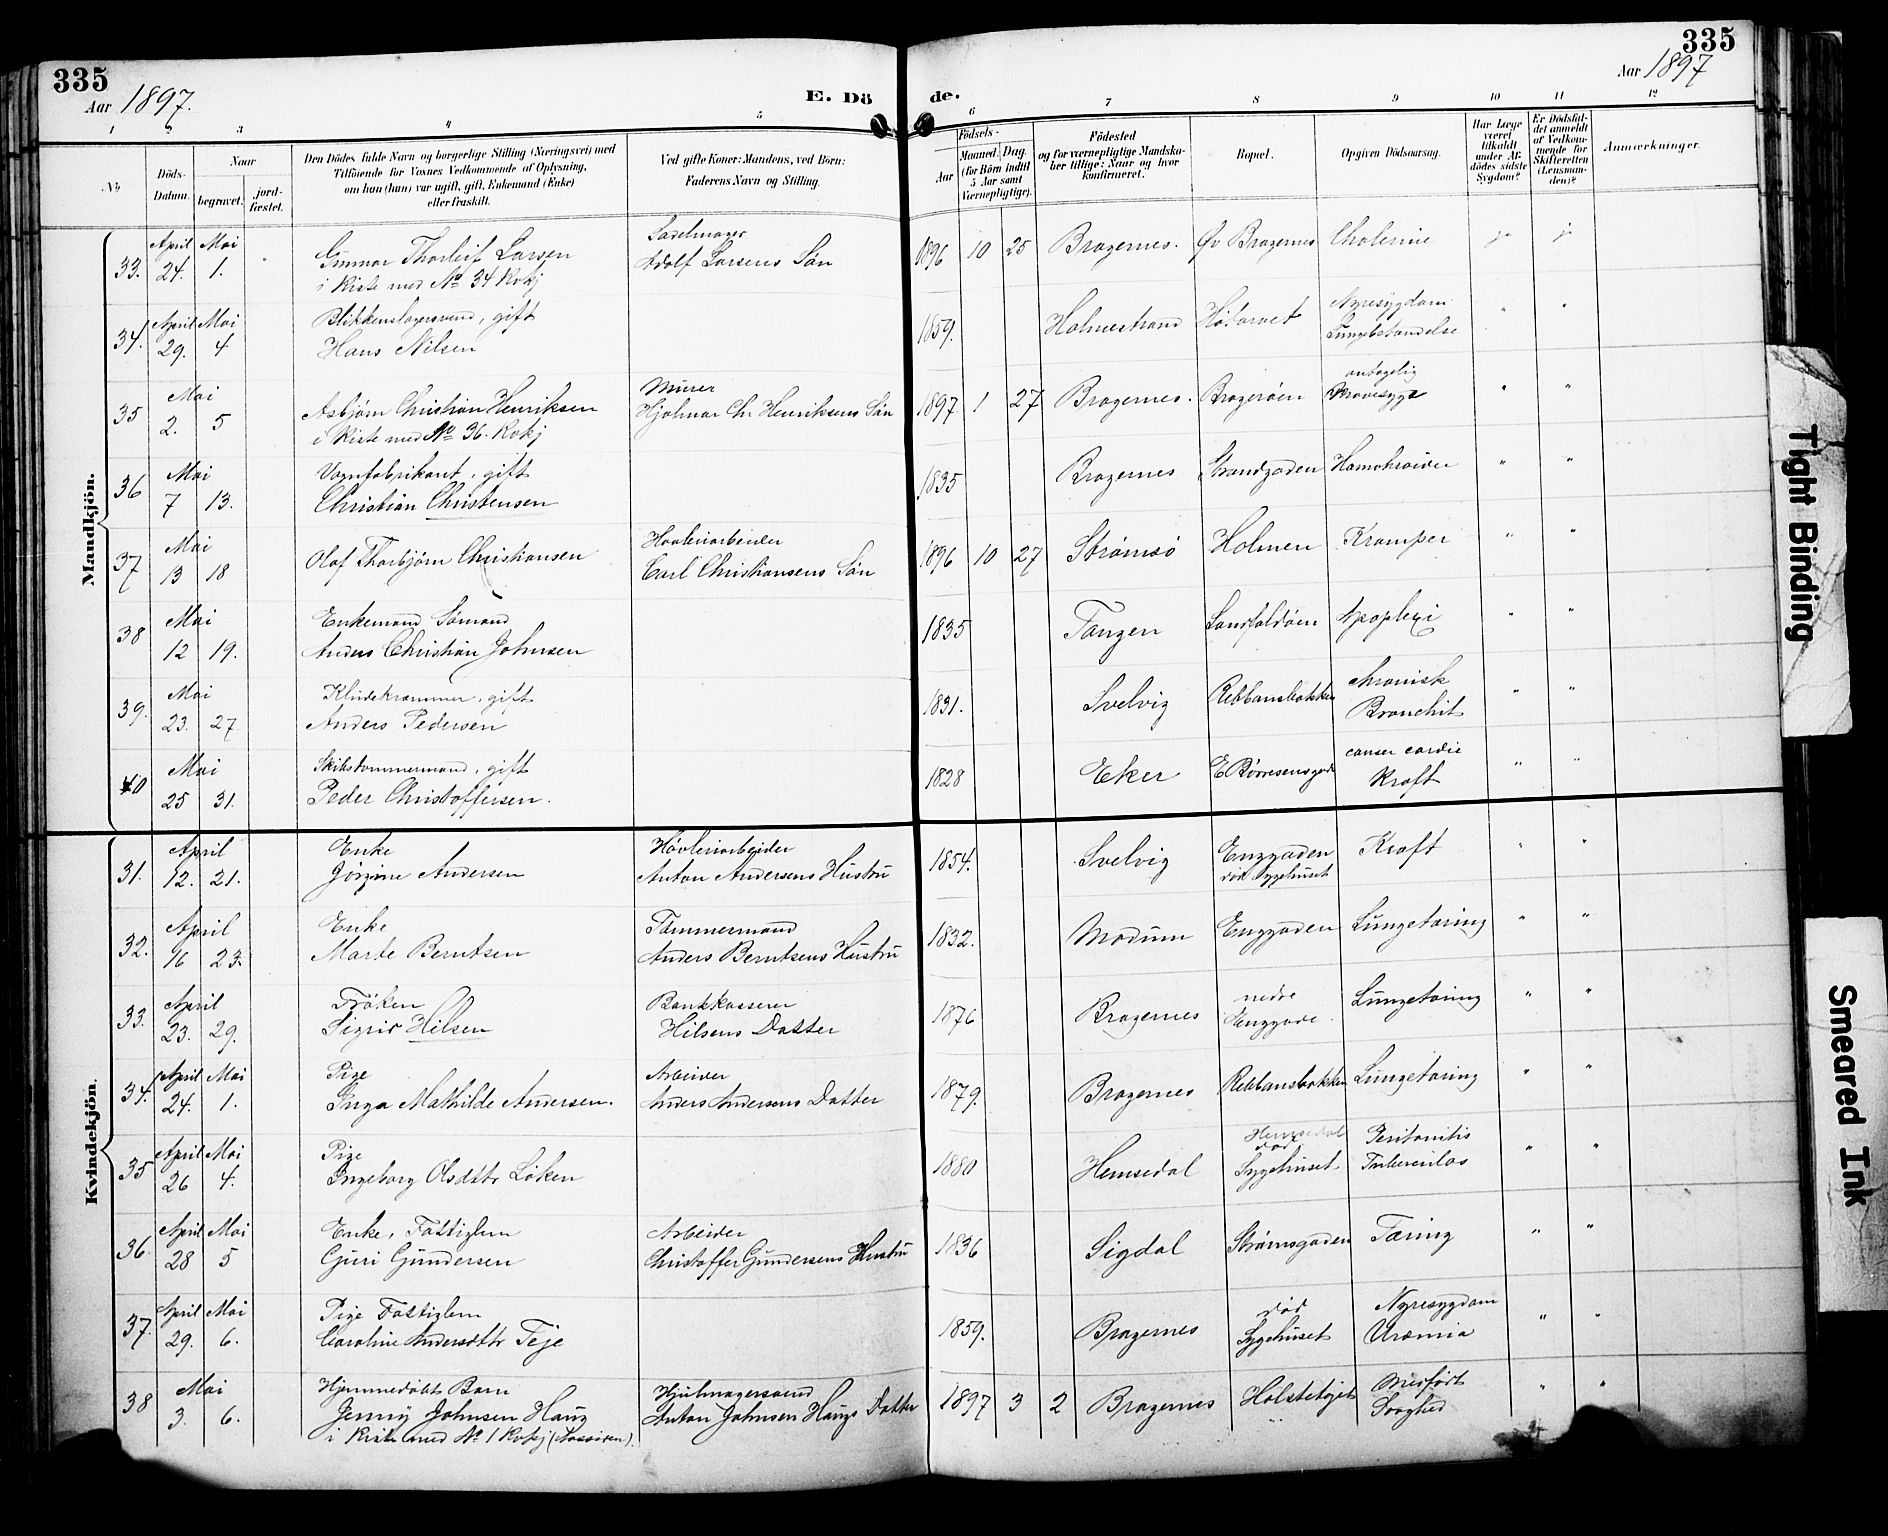 335
Aar 1897.
E. Dö
de.
335
Aar 1897
1 2 3 4 5 6 7 8 9 10 11 12
No
Döds-Datum.
Naar
begravet.
jord-fæstet.
Den Dödes fulde Navn og borgerlige Stilling (Næringsvei) med
Tilföiende for Voxnes Vedkommende af Oplysning,
om han (hun) var ugift, gift, Enkemand (Enke)
eller fraskilt.
Ved gifte Koner: Mandens, ved Börn:
Faderens Navn og Stilling.
Födsels-
Aar
Maaned. Dag.
(for Börn indtil 5 Aar samt Værnepligtige).
Födested
og for værnepligtige Mandska-
ber tillige: Naar og hvor
konfirmeret.
Bopæl.
Opgiven Dödsaarsag.
Har Læge været tilkaldt under Af-dödes sidste Sygdom?
Er Dödsfal-det anmeldt af Vedkom-mende for Skifteretten (Lensman-den)?
Anmærkninger.
Mandkjön.
33. April 24. Mai 1. Gunnar Thorleif Larsen Sadelmager Adolf Larsens Sön 1896 10 25 Bragernes. Öv Bragernes Cholerine ja ja
i Kiste med No 34 Kvkj
34. April 29. Mai 4 Blikkenslagersvend, gift
Hans Nilsen 1859. Holmestrand Hötorvet Nyresygdom
Lungebetændelse " "
35 Mai 2. 5 Asbjörn Christian Henriksen Murer Hjalmar Chr Henriksens Sön 1897 1 27 Bragernes. Bragerøen antagelig
Mavesyge " "
i Kiste med No 36. Kvkj
36 Mai 7 13. Vognfabrikant, gift
Christian Christensen 1835 Bragernes Strandgaden Hæmorhoider " "
37 Mai 13 18 Olaf Thorbjörn Christiansen Høvleriarbeider
Carl Christiansens Sön 1896 10 27 Strømsö Holmen Kramper " "
38 Mai 12 19. Enkemand Sømand
Anders Christian Johnsen 1835 Tangen Landfaldöen Apoplexi " "
39. Mai 23. 27 Kludekræmmer, gift
Anders Pedersen 1831. Svelvig Rebbansbakken chronisk
Bronchit " "
40 Mai 25 31. Skibstømmermand, gift
Peder Christoffersen. 1828 Eker E Börresensgade canser cardie
Kræft " "
Kvindekjön.
31. April 12. 21. Enke
Jörgine Andersen Høvleriarbeider
Anton Andersens Hustru 1854. Svelvig Enggaden
död Sygehuset Kræft " "
32. April 16 23. Enke
Marte Berntsen Tømmermand
Anders Berntsens Hustru 1832. Modum Enggaden Lungetæring " "
33. April 23. 29. Fröken
Sigrid Hilsen Bankkasserer
Hilsens Datter 1876 Bragernes nedre
Enggade. Lungetæring " "
34. April 24. Mai 1. Pige
Inga Mathilde Andersen. Arbeider
Anders Andersens Datter 1879. Bragernes Rebbansbakken Lungetæring " "
35 April 26 Mai 4. Pige
Ingeborg Olsdttr Löken 1880 Hemsedal Hemsedal
död
Sygehuset Peritonitis
Tuberculos " "
36 April 28 Mai 5 Enke, Fattiglem
Guri Gundersen Arbeider
Christoffer Gundersens Hustru 1836 Sigdal Strømsgaden Tæring " "
37. April 29. Mai 6. Pige Fattiglem
Caroline Andersdttr Teje 1859. Bragernes död
Sygehuset Nyresygdom
Uræmia " "
38 Mai 3. 6. Hjemmedöbt Barn
Jenny Johnsen Haug Hjulmagersvend
Anton Johnsen Haugs Datter 1897 3 2 Bragernes Holstehøjet Medfödt
Svaghed " "
i Kiste med No 1 Kvkj
Tight Binding
Smeared Ink